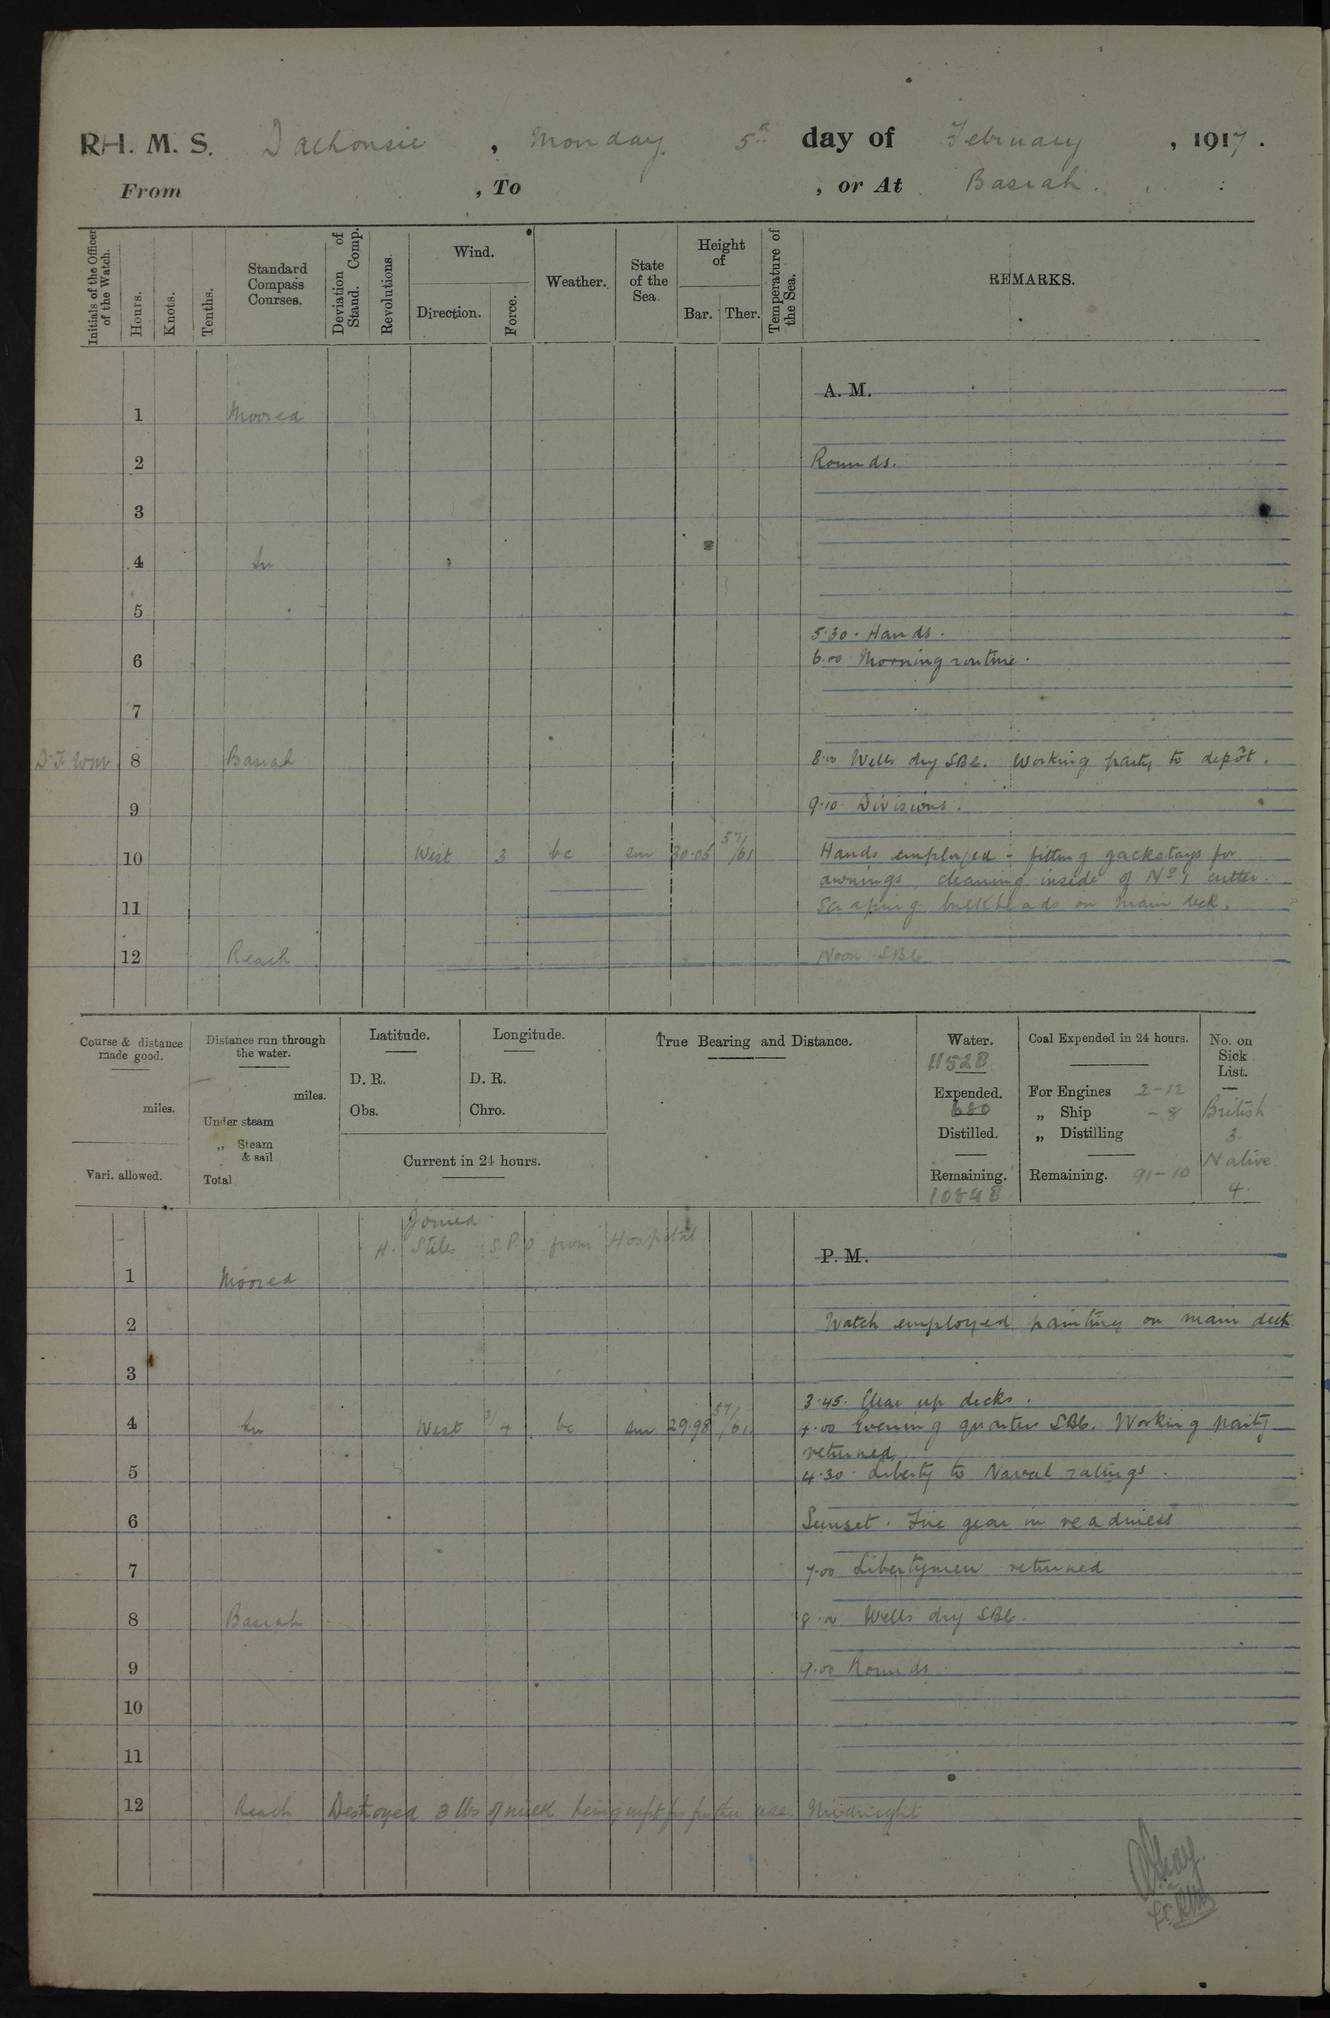 RH. M. S. Dalhousie , Monday 5th day of February , 1917 .
From , To , or At Basrah .
Initials of the Officer of the Watch.
Hours.
Knots.
Tenths.
Standard Compass Courses.
Deviation of Stand. Comp.
Revolutions.
Wind.
Direction.
Force.
Weather.
State of the Sea.
Height of
Bar. Ther.
Temperature of the Sea.
REMARKS.
A. M.
1 Moored
2 Rounds.
3
4 In
5
5.30. Hands.
6 6.00 Morning routine.
7
8 Basrah 8.00 Wells dry SBC. Working party to depôt.
9 9.10 Divisions.
10 West 3 bc sm 30.05 57/61 Hands employed - fitting jackstays for
awnings, cleaning inside of No 1 cutter.
11 Scraping bulkheads on main deck.
12 Reach Noon SBC
Course & distance made good.
miles.
Vari. allowed.
Distance run through the water.
miles.
Under steam
„ Steam & sail
Total
Latitude.
D. R.
Obs.
Longitude.
D. R.
Chro.
Current in 24 hours.
True Bearing and Distance.
Water.
11528
Expended.
680
Distilled.
Remaining.
10848
Coal Expended in 24 hours.
For Engines 2-12
„ Ship - 8
„ Distilling
Remaining. 91-10
No. on Sick List.
British
3
Native
4
Joined
H. Stiles S.P.O from Hospital
P. M.
1 Moored
2 Watch employed painting on main deck
3
3.45. Clear up decks.
4 In West 3/4 bc sm 29.98 57/61 4.00 Evening quarters SBC. Working party
returned
5 4.30 Liberty to Naval ratings.
6 Sunset. Fire gear in readiness
7 7.00 Libertymen returned
8 Basrah 8.00 Wells dry SBC.
9 9.00 Rounds
10
11
12 Reach Destroyed 3 lbs of milk being unfit for further use. Midnight